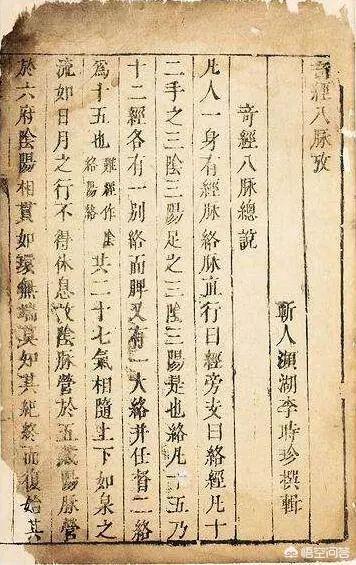 竒經八脉攷
蘄人瀕湖李時珍撰輯
竒經八脉總說
凡人一身有經脉絡脉直行曰經旁支曰絡經凡十
二手之三陰三陽足之三陰三陽是也絡凡十五乃
十二經各有一別絡而脾又有一大絡并任督二絡
為十五也難經作陰絡陽絡共二十七氣相隨上下如泉之
流如日月之行不得休息故陰脉營於五藏陽脉營
於六府陰陽相貫如環無端莫知其紀終而復始其
悟空问答